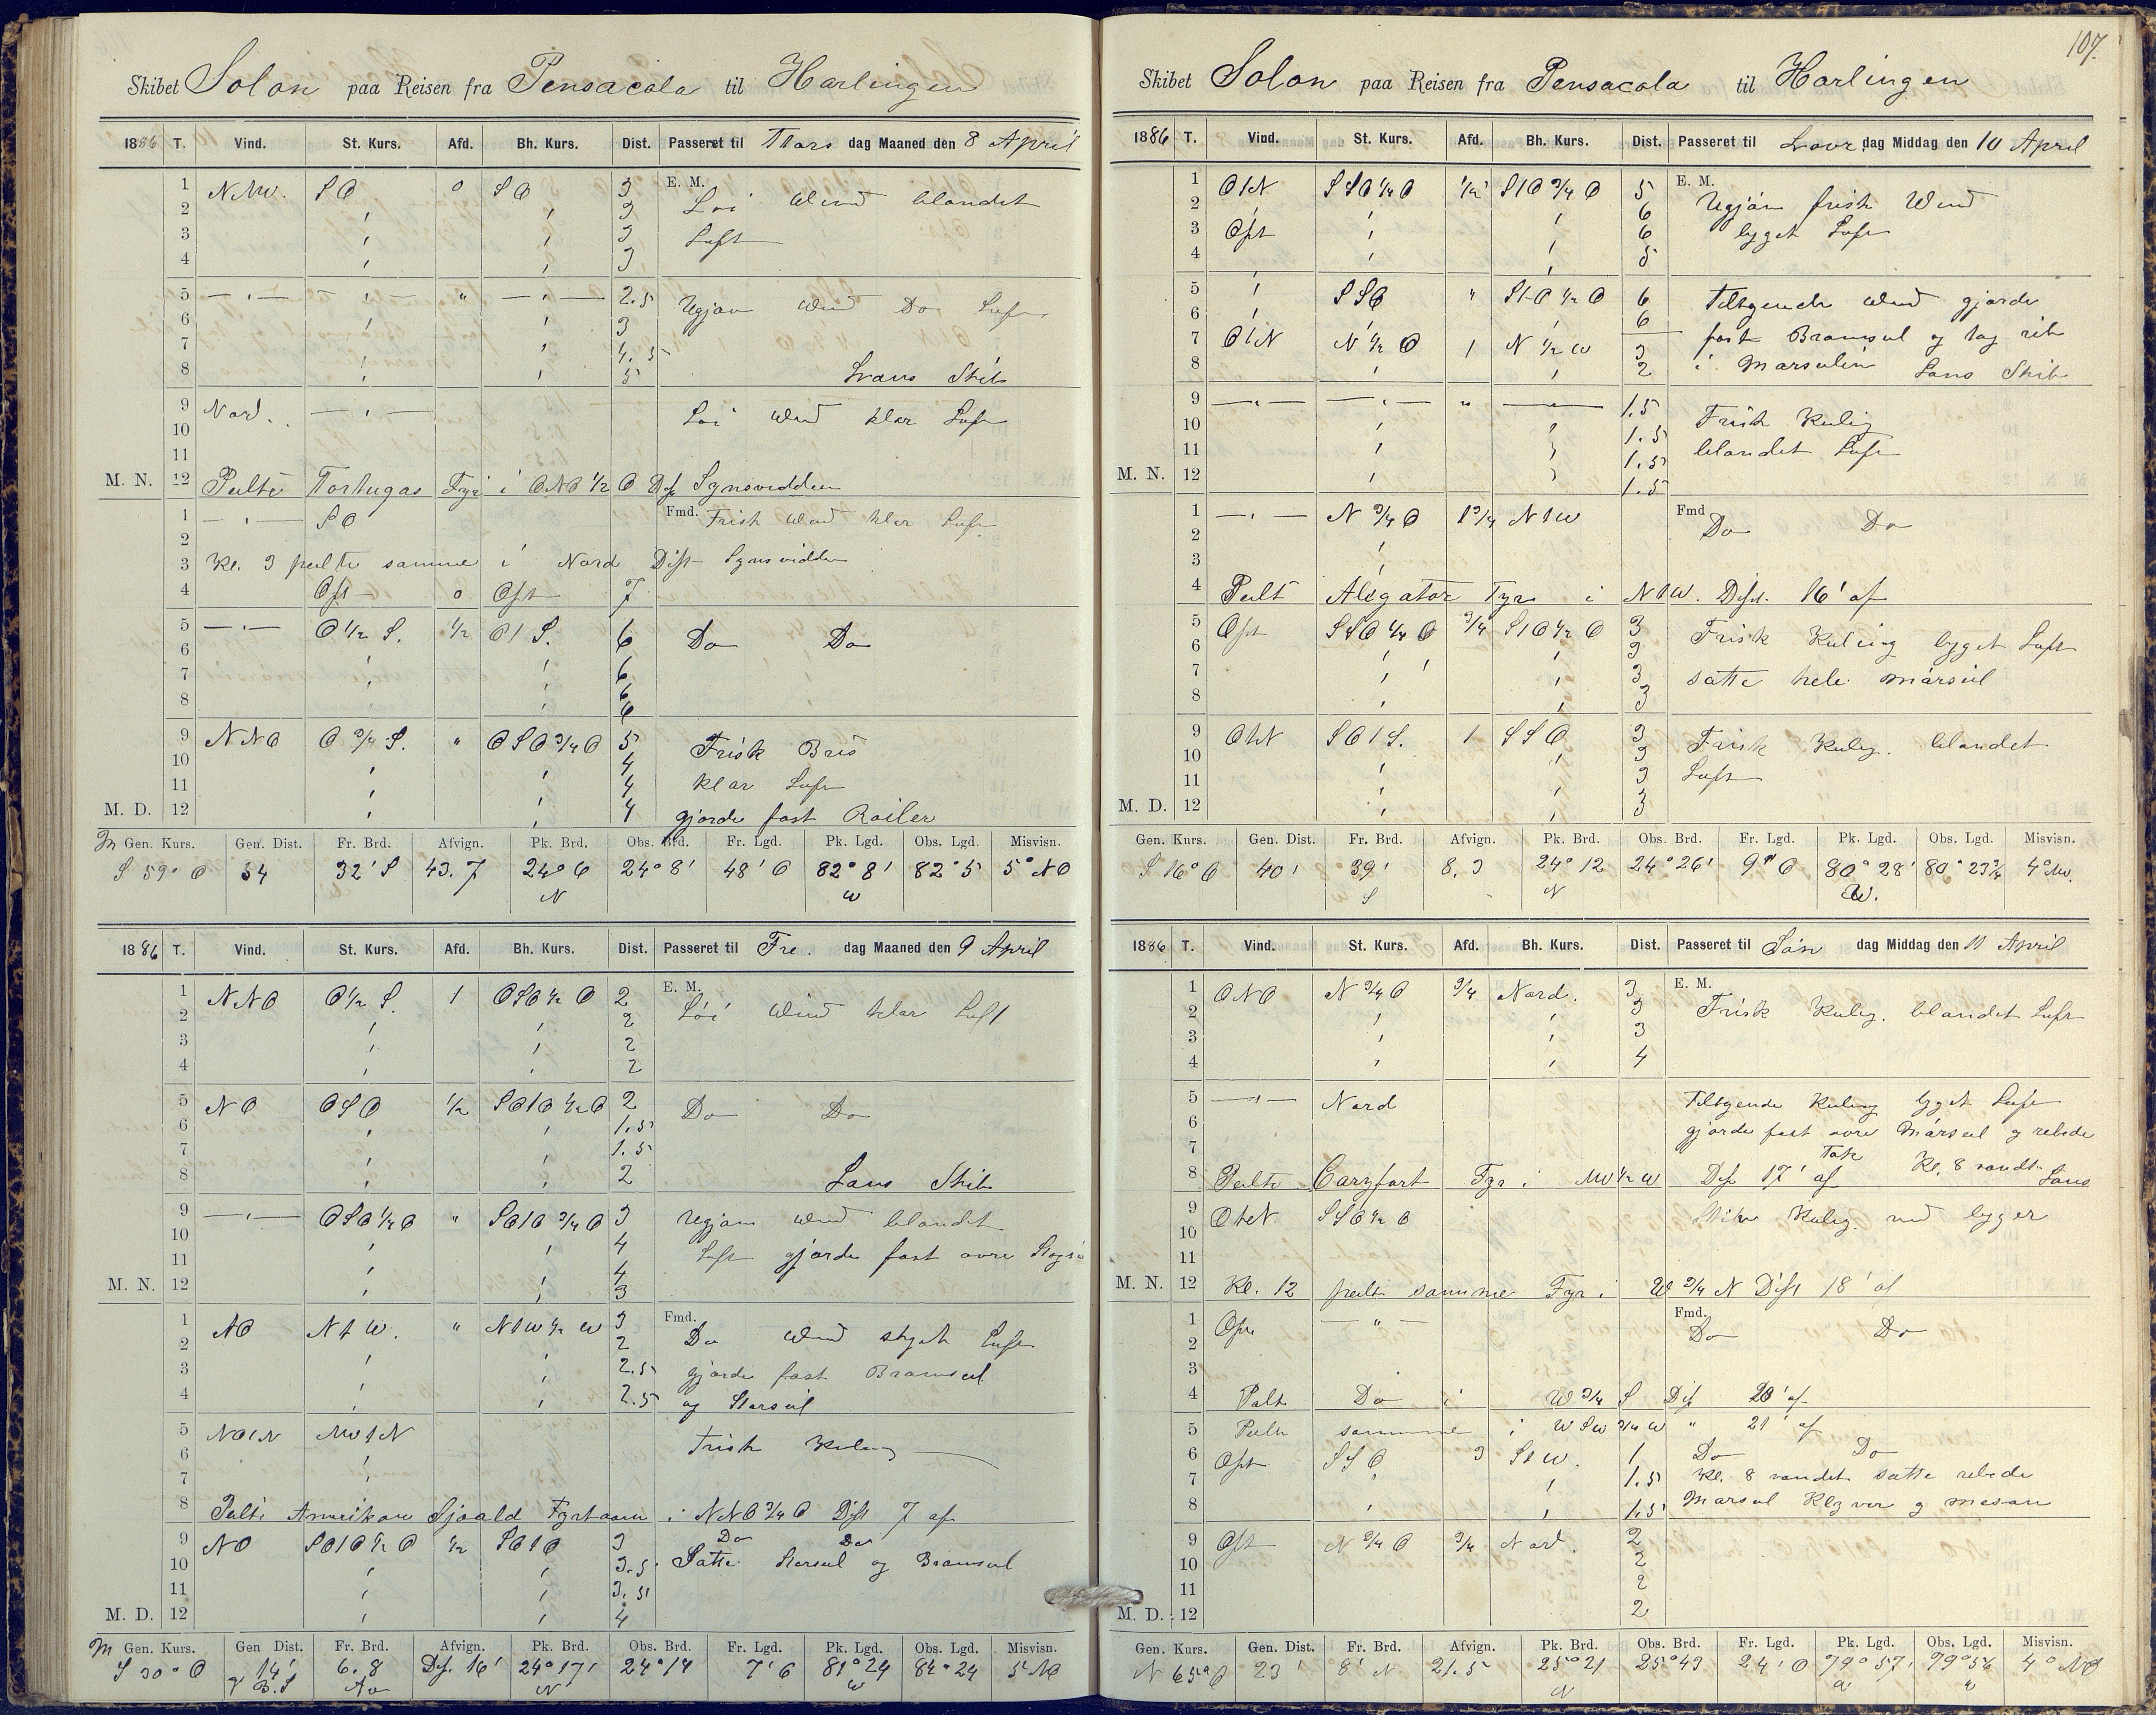 Skibet Solon paa Reisen fra Pensacola til Harlingen
1886 T. Vind. St. Kurs. Afd. Bh. Kurs. Dist. Passeret til Thors dag Maaned den 8 April
E. M.
1 NNW. SO 0 SO 3 Löi Wind blandet
2 " " 3
3 " " 3 Luft
4 " " 3
5 — " — — " — " — " — 2.5 Ugjön Wind Do Luft
6 " " 3
7 " 4.5
8 " " 5 Lans Skib
9 Nord. — " — Löi Wind klar Luft
10
11
M. N. 12 Peilte Tortugas Fyr i ONO 1/2 O Dist Synsvidden
Fmd.
1 — " — SO Frisk Wind klar Luft
2
3 Kl. 3 peilte samme i Nord Dist Synsvidden
4 Ost 0 Ost 7
5 — " — O 1/2 S. 1/2 O t S. 6 Do Do
6 " " 6
7 " " 6
8 " 6
9 NNO O 3/4 S. " OSO 3/4 O 5 Frisk Bris
10 " " 4
11 " " 4 klar Luft
M. D. 12 " " 4 gjorde fast Roiler
M Gen. Kurs. Gen. Dist. Fr. Brd. Afvign. Pk. Brd. Obs. Brd. Fr. Lgd. Pk. Lgd. Obs. Lgd. Misvisn.
S 59° O 54 32' S 43.7 24° 6 24° 8' 48' O 82° 8' 82° 5 5° NO
N W
1886 T. Vind. St. Kurs. Afd. Bh. Kurs. Dist. Passeret til Fre. dag Maaned den 9 April
E. M.
1 NNO O 1/2 S. 1 OSO 1/2 O 2 Löi Wind klar Luft
2 " " 2
3 " " 2
4 " " 2
5 NO OSO 1/2 SOtO 1/2 O 2 Do Do
6 " " 1.5
7 " " 1.5
8 " " 2 Lans Skib
9 — " — OSO 1/2 O " SOtO 3/4 O 3 Ugjön Wind blandet
10 " " 4
11 " " 4 Luft gjorde fast övre
M. N. 12 " " 3
Fmd.
1 NO N t W. " NtW 1/2 W 3 Do Wind skyet Luft
2 " " 2
3 " " 2.5 gjorde fast Bramseil
4 " " 2.5 og Storseil
5 NOtN NWtN Frisk Kuling
6 "
7 "
8 Peilte Amerikan Sjoald Fyrtaarn i NNO 3/4 O Dist 7 af
9 NO SOtO 1/2 O 1/2 SOtO 3 Do Do
10 " " 3.5 Satte Storseil og Bramseil
11 " " 3.5
M. D. 12 " " 4
M Gen. Kurs. Gen Dist. Fr. Brd. Afvign. Pk. Brd. Obs. Brd. Fr. Lgd. Pk. Lgd. Obs. Lgd. Misvisn.
S 30° O 14' 6.8 Dist. 16' 24° 17' 24° 14 7' 6 81° 24 82° 24 5° NO
N W
107.
Skibet Solon paa Reisen fra Pensacola til Harlingen
1886 T. Vind. St. Kurs. Afd. Bh. Kurs. Dist. Passeret til Lövr. dag Middag den 10 April
E. M.
1 OtN SSO 1/4 O 1/2 StO 3/4 O 5 Ugjön frisk Wind
2 " " " 6
3 Ost " " 6 bygget Luft
4 " " 5
5 " SSO " StO 1/2 O 6 Tiltagende Wind gjorde
6 " " " 6
7 OtN N 1/2 O 1 N 1/2 W 3 fast Bramseil og tog rib
8 " " 2 i Marseilen Lans Skib
9 — " — — " — " — " — 1.5 Frisk Kuling
10 " " 1.5
11 " " 1.5 blandet Luft
M. N. 12 " " 1.5
Fmd
1 — " — N 3/4 O 1 3/4 N t W Do Do
2 "
3 "
4 Peilt Aligator Fyr i NtW. Dist. 16' af
5 Ost SSO 1/4 O 3/4 StO 1/2 O 3 Frisk Kuling bygget Luft
6 " " 3
7 " " 3 satte hele Marseil
8 " " 3
9 OtN SOtS. 1 SSO 3 Frisk Kuling. blandet
10 " " 3
11 " " 3 Luft
M. D. 12 " " 3
Gen. Kurs. Gen. Dist. Fr. Brd. Afvign. Pk. Brd. Obs. Brd. Fr. Lgd. Pk. Lgd. Obs. Lgd. Misvisn.
S 16° O 40' 39' 8.3 24° 12 24° 26' 9' O 80° 28' 80° 23 4° NO.
S N W.
1886 T. Vind. St. Kurs. Afd. Bh. Kurs. Dist. Passeret til Sön dag Middag den 11 April
E. M.
1 ONO N 3/4 O 3/4 Nord. 3 Frisk Kuling. blandet Luft
2 " " 3
3 " " 3
4 " " 4
5 — " — Nord Tiltagende Kuling bygget Luft
6 gjorde fast övre Marseil og rebede
7 Tok
8 Peilte Caryfort Fyr i NW 1/2 W Dist 17' af Kl. 8 vendt Lans
9 OtN. SSO 1/2 O Kuling. med bygger
10
11
M. N. 12 Kl. 12 peilt samme Fyr i W 3/4 N Dist 18' af
Fmd.
1 Ost — " — Do Do
2
3
4 Peilt Do i W 3/4 S Dist 20' af
5 Peilte samme i WSW 3/4 W " 21' af
6 Ost SSO 3 StW. 1 Do Do
7 " " 1.5 Kl. 8 vendt satte rebede
8 " " 1.5 Marseil Klyver og mesan
9 Ost N 3/4 O 3/4 Nord. 2
10 2
11 2
M. D. 12 2
Gen. Kurs. Gen. Dist. Fr. Brd. Afvign. Pk. Brd. Obs. Brd. Fr. Lgd. Pk. Lgd. Obs. Lgd. Misvisn.
N 65° O 23' 8' N 21.5 25° 21 25° 43 24' O 79° 57' 79° 56 4° NO
N W W